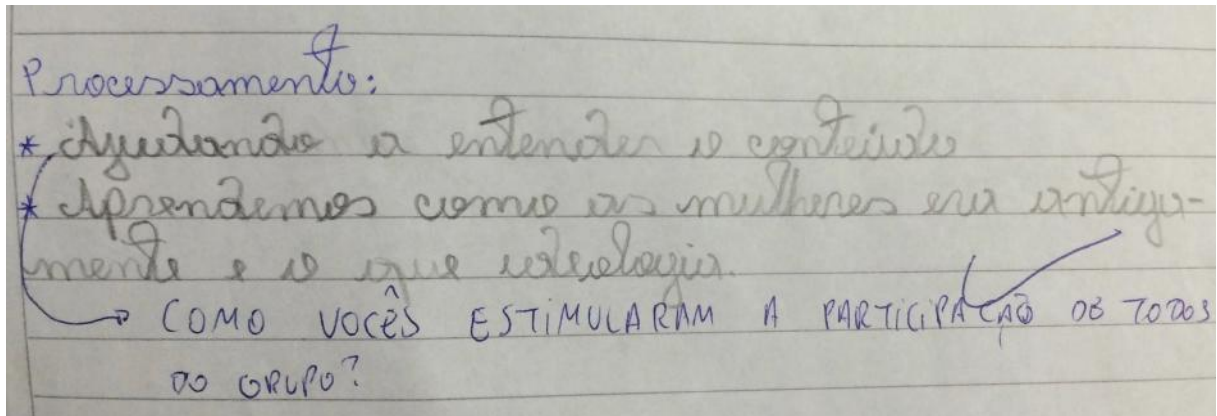 Processamento:
* Ajudando a entender o conteúdo
* Aprendemos como as mulheres era antiga-
mente e o que ideologia.
COMO VOCÊS ESTIMULARAM A PARTICIPAÇÃO DE TODOS
DO GRUPO?